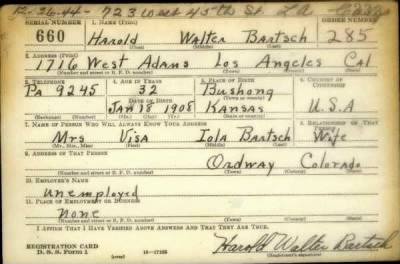 2-26-44- 723 West 45th St. L.A. Calif
SERIAL NUMBER 1. NAME (Print) ORDER NUMBER
660 Harold Walter Bartsch 285
(First) (Middle) (Last)
2. ADDRESS (Print)
1716 West Adams Los Angeles Cal
(Number and street or R. F. D. number) (Town) (County) (State)
3. TELEPHONE 4. AGE IN YEARS 5. PLACE OF BIRTH 6. COUNTRY OF CITIZENSHIP
PA 9245 32 Bushong
DATE OF BIRTH (Town or county)
Jan 18 1908 Kansas U.S.A
(Exchange) (Number) (Mo.) (Day) (Yr.) (State or country)
7. NAME OF PERSON WHO WILL ALWAYS KNOW YOUR ADDRESS 8. RELATIONSHIP OF THAT PERSON
Mrs Visa Iola Bartsch Wife
(Mr., Mrs., Miss) (First) (Middle) (Last)
9. ADDRESS OF THAT PERSON
Ordway Colorado
(Number and street or R. F. D. number) (Town) (County) (State)
10. EMPLOYER'S NAME
Unemployed
11. PLACE OF EMPLOYMENT OR BUSINESS
None
(Number and street or R. F. D. number) (Town) (County) (State)
I AFFIRM THAT I HAVE VERIFIED ABOVE ANSWERS AND THAT THEY ARE TRUE.
REGISTRATION CARD
D. S. S. Form 1 (over) 16-17105 Harold Walter Bartsch
(Registrant's signature)